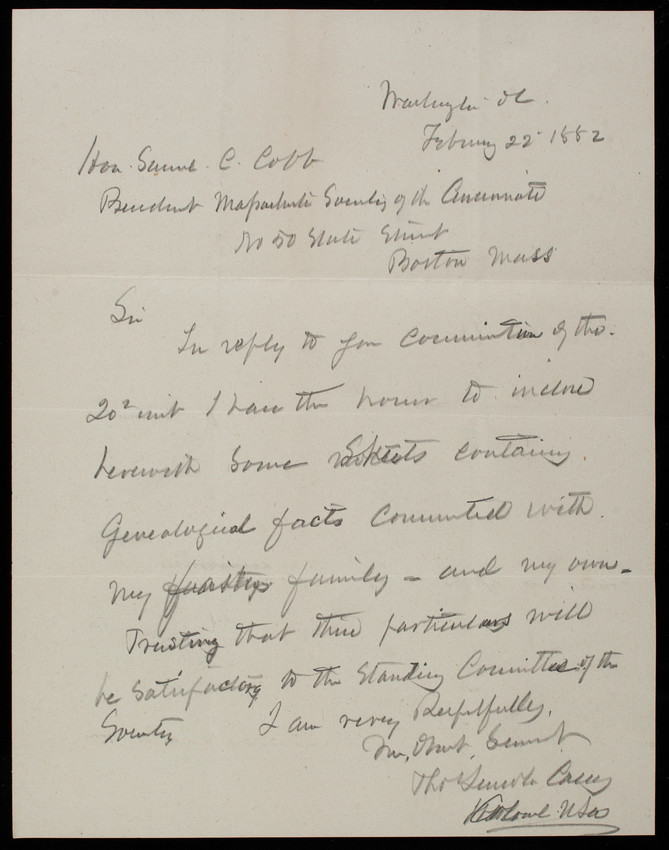 Washington DC.
February 22d 1882
Hon. Samuel C. Cobb
President Massachusetts Society of the Cincinnati
No 50 State Street
Boston Mass
Sir
In reply to your communication of the
20th inst I have the honor to inclose
herewith some sheets containing
Genealogical facts connected with
my family – and my own –
Trusting that these particulars will
be satisfactory to the Standing Committee of the
Society I am very Respectfully,
Your Obdt. Servant
Thos Lincoln Casey
Colonel USA